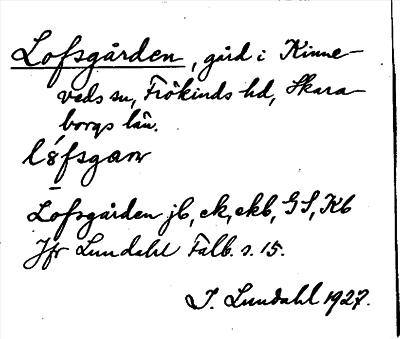 Lofsgården, gård i Kinne-
veds sn, Frökinds hd, Skara-
borgs län.
Lofsgården jb, ek, ekb, GS, Kb
Jfr Lundahl Falb. s. 15.
I. Lundahl 1927.